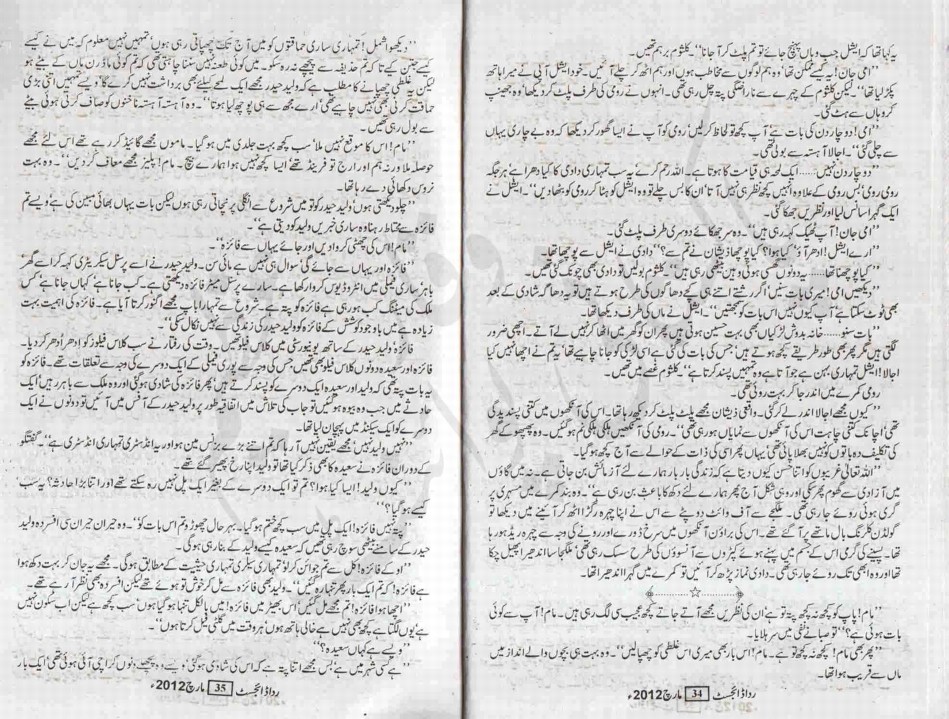 یہ کہا تھا کہ ایشل جب وہاں پہنچ جائے تو تم پلٹ کر آ جانا‘‘۔ کلثوم برہم تھیں۔
’’امی جان! یہ کیسے ممکن تھا‘ وہ ہم لوگوں سے مخاطب ہوں اور ہم اٹھ کر چلے آئیں۔ خود ایشل آپی نے میرا ہاتھ
پکڑ لیا تھا‘‘۔ لیکن کلثوم کے چہرے سے ناراضگی پتہ چل رہی تھی۔ انہوں نے رومی کی طرف پلٹ کر دیکھا‘ وہ جھینپ
کر وہاں سے ہٹ گئی۔
’’امی! دو چار دن کی بات ہے‘ آپ کچھ تو لحاظ کر لیں‘ رومی کو آپ نے ایسا گھور کر دیکھا کہ وہ بے چاری یہاں
سے چلی گئی‘‘۔ اجالا آہستہ سے بولی تھی۔
’’دو چار دن نہیں...... ایک لمحہ ہی قیامت کا ہوتا ہے۔ اللہ رحم کرے‘ یہ سب تمہاری دادی کا کیا دھرا ہے‘ ہر جگہ
رومی رومی‘ بس رومی کے علاوہ انہیں کچھ نظر ہی نہیں آتا‘ ان کا بس چلے تو وہ ایشل کو ہٹا کر رومی کو بٹھا دیں‘‘۔ ایشل نے
ایک گہرا سانس لیا اور نظریں جھکا گئی۔
’’امی جان! آپ ٹھیک کہہ رہی ہیں‘‘۔ وہ سر جھکائے دوسری طرف پلٹ گئی۔
’’ارے ایشل! ادھر آؤ‘ کیا ہوا؟ کیا پوچھا ذیشان نے تم سے؟‘‘ دادی نے ایشل سے پوچھا۔
’’کیا پوچھنا تھا...... یہ دونوں گھسی ہوئی وہیں بیٹھی رہی ہیں‘‘۔ کلثوم بولیں تو دادی بھی چونک گئی تھیں۔
’’دیکھیں امی! میری بات سنیں‘ اگر رشتے اتنے ہی کچے دھاگوں کی طرح ہوتے ہیں تو یہ دھاگہ شادی کے بعد
بھی ٹوٹ سکتا ہے‘ آپ کیوں نہیں اس بات کو سمجھتیں‘‘۔ ایشل نے ماں کی طرف دیکھا تھا۔
’’بات سنو...... خانہ بدوش لڑکیاں بھی بہت حسین ہوتی ہیں پھر ان کو گھر میں اٹھا کر نہیں لے آتے۔ اچھی ضرور
لگتی ہیں مگر پھر بھی طور طریقے کچھ ہوتے ہیں‘ جس کی بات کی گئی ہے اسی لڑکی کو جانا چاہیے تھا‘ یہ تم نے اچھا نہیں کیا
اجالا! ایشل تمہاری بہن ہے جو آتا ہے وہ تمہیں پسند کرتا ہے‘‘۔ کلثوم غصے میں تھیں۔
رومی کمرے میں اندر جا کر بہت روئی تھی۔
’’کیوں مجھے اجالا اندر لے کر گئی۔ واقعی ذیشان مجھے پلٹ پلٹ کر دیکھ رہا تھا۔ اس کی آنکھوں میں کتنی پسندیدگی
تھی‘ اچانک کتنی چاہت اس کی آنکھوں سے نمایاں ہو رہی تھی‘‘۔ رومی کی آنکھیں ہلکی ہلکی نم ہو گئیں۔ وہ پھپھو کے گھر
کی تکلیف دہ باتوں کو نہیں بھلا پائی تھی‘ یہاں پھر اسی کی ذات کے حوالے سے آج کچھ ہو گیا۔
’’اللہ تعالیٰ غریبوں کو اتنا حسن کیوں دیتا ہے کہ زندگی بار بار ہمارے لئے آزمائش بن جاتی ہے۔ نہ میں گاؤں
میں آزادی سے گھوم پھر سکی اور وہی شکل آج پھر ہمارے لئے دکھ کا باعث بن رہی ہے‘‘۔ وہ بند کمرے میں مسہری پر
گری ہوئی روئے جا رہی تھی۔ ملگجے سے آف وائٹ دوپٹے سے اس نے اپنا چہرہ رگڑا اٹھ کر آئینے میں دیکھا تو
گولڈن کلر رنگ بال ماتھے پر آ گئے تھے۔ اس کی براؤن آنکھوں میں سرخ ڈورے اور رونے کی وجہ سے چہرہ ریڈ ہو رہا
تھا۔ پسینے کی گرمی اس کے جسم میں پہنے ہوئے کپڑوں سے آنسوؤں کی طرح سسک رہی تھی‘ ملگجا سا اندھیرا پھیل چکا
تھا اور وہ ابھی تک روئے جا رہی تھی۔ دادی نماز پڑھ کر آئیں تو کمرے میں گہرا اندھیرا تھا۔
☆
’’مام! پاپ کو کچھ نہ کچھ پتہ تو ہے‘ ان کی نظریں مجھے آتے جاتے کچھ عجیب سی لگ رہی ہیں۔ مام! آپ سے کوئی
بات ہوئی ہے؟‘‘ تو صبا نے نفی میں سر ہلایا۔
’’پھر بھی مام! کچھ نہ کچھ تو ہے۔ مام! اس بار بھی میری اس غلطی کو چھپا لیں‘‘۔ وہ بہت ہی بچوں والے انداز میں
ماں سے قریب ہوا تھا۔
ردا ڈائجسٹ 34 مارچ 2012ء
’’دیکھو اشمل! تمہاری ساری حماقتوں کو میں آج تک چھپاتی رہی ہوں‘ تمہیں نہیں معلوم کہ میں نے کیسے
کیسے جتن کیے تا کہ تم حذیفہ سے پیچھے نہ رہ سکو۔ میں کوئی طعنہ نہیں سننا چاہتی تھی کہ تم کوئی ماڈرن ماں کے بیٹے ہو
لیکن یہ غلطی چھپانے کا مطلب ہے کہ ولید حیدر مجھے ایک لمحے کیلئے بھی برداشت نہیں کرے گا‘ ویسے تمہیں اتنی بڑی
حماقت کرنی بھی نہیں چاہیے تھی‘ ارے مجھ سے ہی پوچھ لیا ہوتا‘‘۔ وہ آہستہ آہستہ ناخنوں کو صاف کرتی ہوئی بیٹے
سے بول رہی تھیں۔
’’مام! اس کا موقع نہیں ملا‘ سب کچھ بہت جلدی میں ہو گیا۔ ماموں مجھے گائیڈ کر رہے تھے اس لئے مجھے
حوصلہ ملا ورنہ ہم اور ارج تو فرینڈ تھے‘ ایسا کچھ نہیں ہوا ہمارے بیچ۔ مام! پلیز مجھے معاف کر دیں‘‘۔ وہ بہت
نروس دکھائی دے رہا تھا۔
’’چلو دیکھتی ہوں‘ ولید حیدر کو تو میں شروع سے انگلی پر نچاتی رہی ہوں لیکن بات یہاں بھائی مبین کی ہے‘ ویسے تم
فائزہ سے محتاط رہنا وہ ساری خبریں ولید کو دیتی ہے‘‘۔
’’مام! اس کی چھٹی کروا دیں اور جائے یہاں سے فائزہ‘‘۔
’’فائزہ اور یہاں سے جائے گی‘ سوال ہی نہیں ہے مائی سن۔ ولید حیدر نے اُسے پرسنل سیکریٹری کہہ کر اسے گھر‘
باہر‘ ساری فیملی میں انٹروڈیوس کروا رکھا ہے۔ سارے پرسنل میٹر فائزہ دیکھتی ہے۔ کب جانا ہے‘ کہاں جانا ہے‘ کس
ملک کی میٹنگ کب ہو رہی ہے فائزہ کو پتہ ہے۔ شروع سے تمہارا باپ مجھے اگنور کرتا آیا ہے۔ فائزہ کی اہمیت بہت
زیادہ ہے میں باوجود کوشش کے فائزہ کو ولید حیدر کی زندگی سے نہیں نکال سکی‘‘۔
فائزہ‘ ولید حیدر کے ساتھ یونیورسٹی میں کلاس فیلو تھیں۔ وقت کی رفتار نے سب کلاس فیلوز کو ادھر اُدھر کر دیا۔
فائزہ اور سعیدہ دونوں کلاس فیلو بھی تھیں جس کی وجہ سے پوری فیملی کے ایک دوسرے کی وجہ سے تعلقات تھے۔ فائزہ کو
یہ بات پتہ تھی کہ ولید اور سعیدہ ایک دوسرے کو پسند کرتے ہیں‘ پھر فائزہ کی شادی ہو گئی اور وہ ملک سے باہر رہیں‘ ایک
حادثے میں جب وہ بیوہ ہو گئیں تو جاب کی تلاش میں اتفاقیہ طور پر ولید حیدر کے آفس میں آئیں تو دونوں نے ایک
دوسرے کو ایک سیکنڈ میں پہچان لیا تھا۔
’’نہیں ولید نہیں‘ مجھے یقین نہیں آ رہا کہ تم اتنے بڑے بزنس مین ہو اور یہ انڈسٹری تمہاری انڈسٹری ہے‘‘۔ گفتگو
کے دوران فائزہ نے سعیدہ کا بھی ذکر کیا تھا تو ولید اپنا رخ پھیر گئے تھے۔
’’کیوں ولید! ایسا کیا ہوا؟ تم تو ایک دوسرے کے بغیر ایک پل نہیں رہ سکتے تھے اور اتنا بڑا حادثہ؟ یہ سب
کیسے ہو گیا؟‘‘
’’پتہ نہیں فائزہ! ایک پل میں سب کچھ ختم ہو گیا۔ بہر حال چھوڑو تم اس بات کو‘‘۔ وہ حیران حیران سی افسردہ ولید
حیدر کے سامنے بیٹھی سوچ رہی تھیں کہ سعیدہ کیسے ولید کے بنا رہی ہو گی۔
’’او کے فائزہ! کل سے تم جوائن کر لو‘ تمہاری سیلری تمہاری حیثیت کے مطابق ہو گی۔ مجھے یہ جان کر بہت دکھ ہوا
ہے فائزہ! کہ تم ایک بار پھر تنہا رہ گئیں‘‘۔ ولید بھی فائزہ سے مل کر خوش تو ہوئے تھے لیکن افسردہ بھی نظر آ رہے تھے۔
’’اچھا ہوا فائزہ! تم مجھے مل گئیں‘ اس بھیڑ میں فائزہ! میں بالکل تنہا ہو گیا ہوں‘ سب کچھ ہے لیکن اب سکون نہیں
ہے‘ یوں لگتا ہے کچھ بھی نہیں ہے خالی ہاتھ ہوں‘ ہر وقت میں گلٹی فیل کرتا ہوں‘‘۔
’’ویسے ہے کہاں سعیدہ؟‘‘
’’ہے کسی شہر میں ہے‘ بس مجھے اتنا پتہ ہے کہ اس کی شادی ہو گئی‘ ویسے وہ پچھلے دنوں کراچی آئی ہوئی تھی‘ ایک بار
ردا ڈائجسٹ 35 مارچ 2012ء